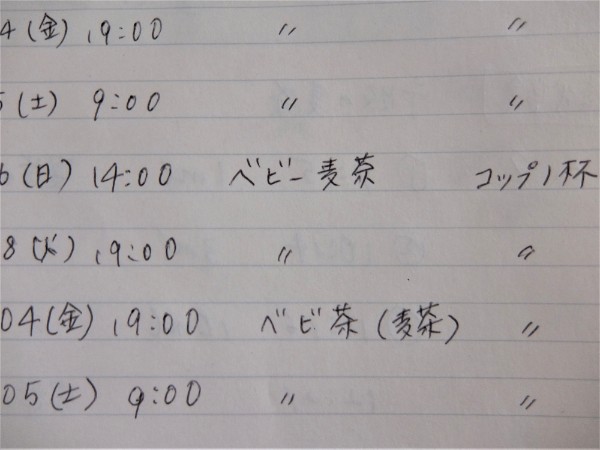 4(金) 19:00 〃 〃
5(土) 9:00 〃 〃
6(日) 14:00 ベビー麦茶 コップ1杯
8(火) 19:00 〃 〃
04(金) 19:00 ベビ茶(麦茶) 〃
05(土) 9:00 〃 〃